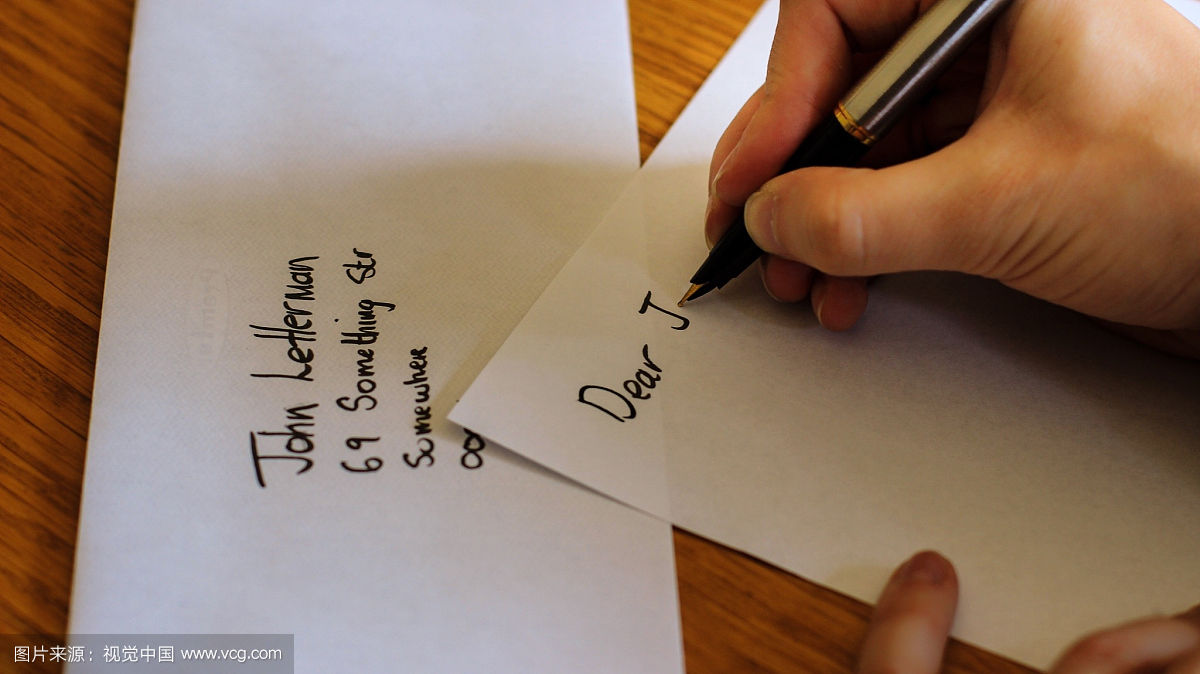 John Letterman
69 Something Str
Somewhere
00
Dear J
图片来源：视觉中国 www.vcg.com